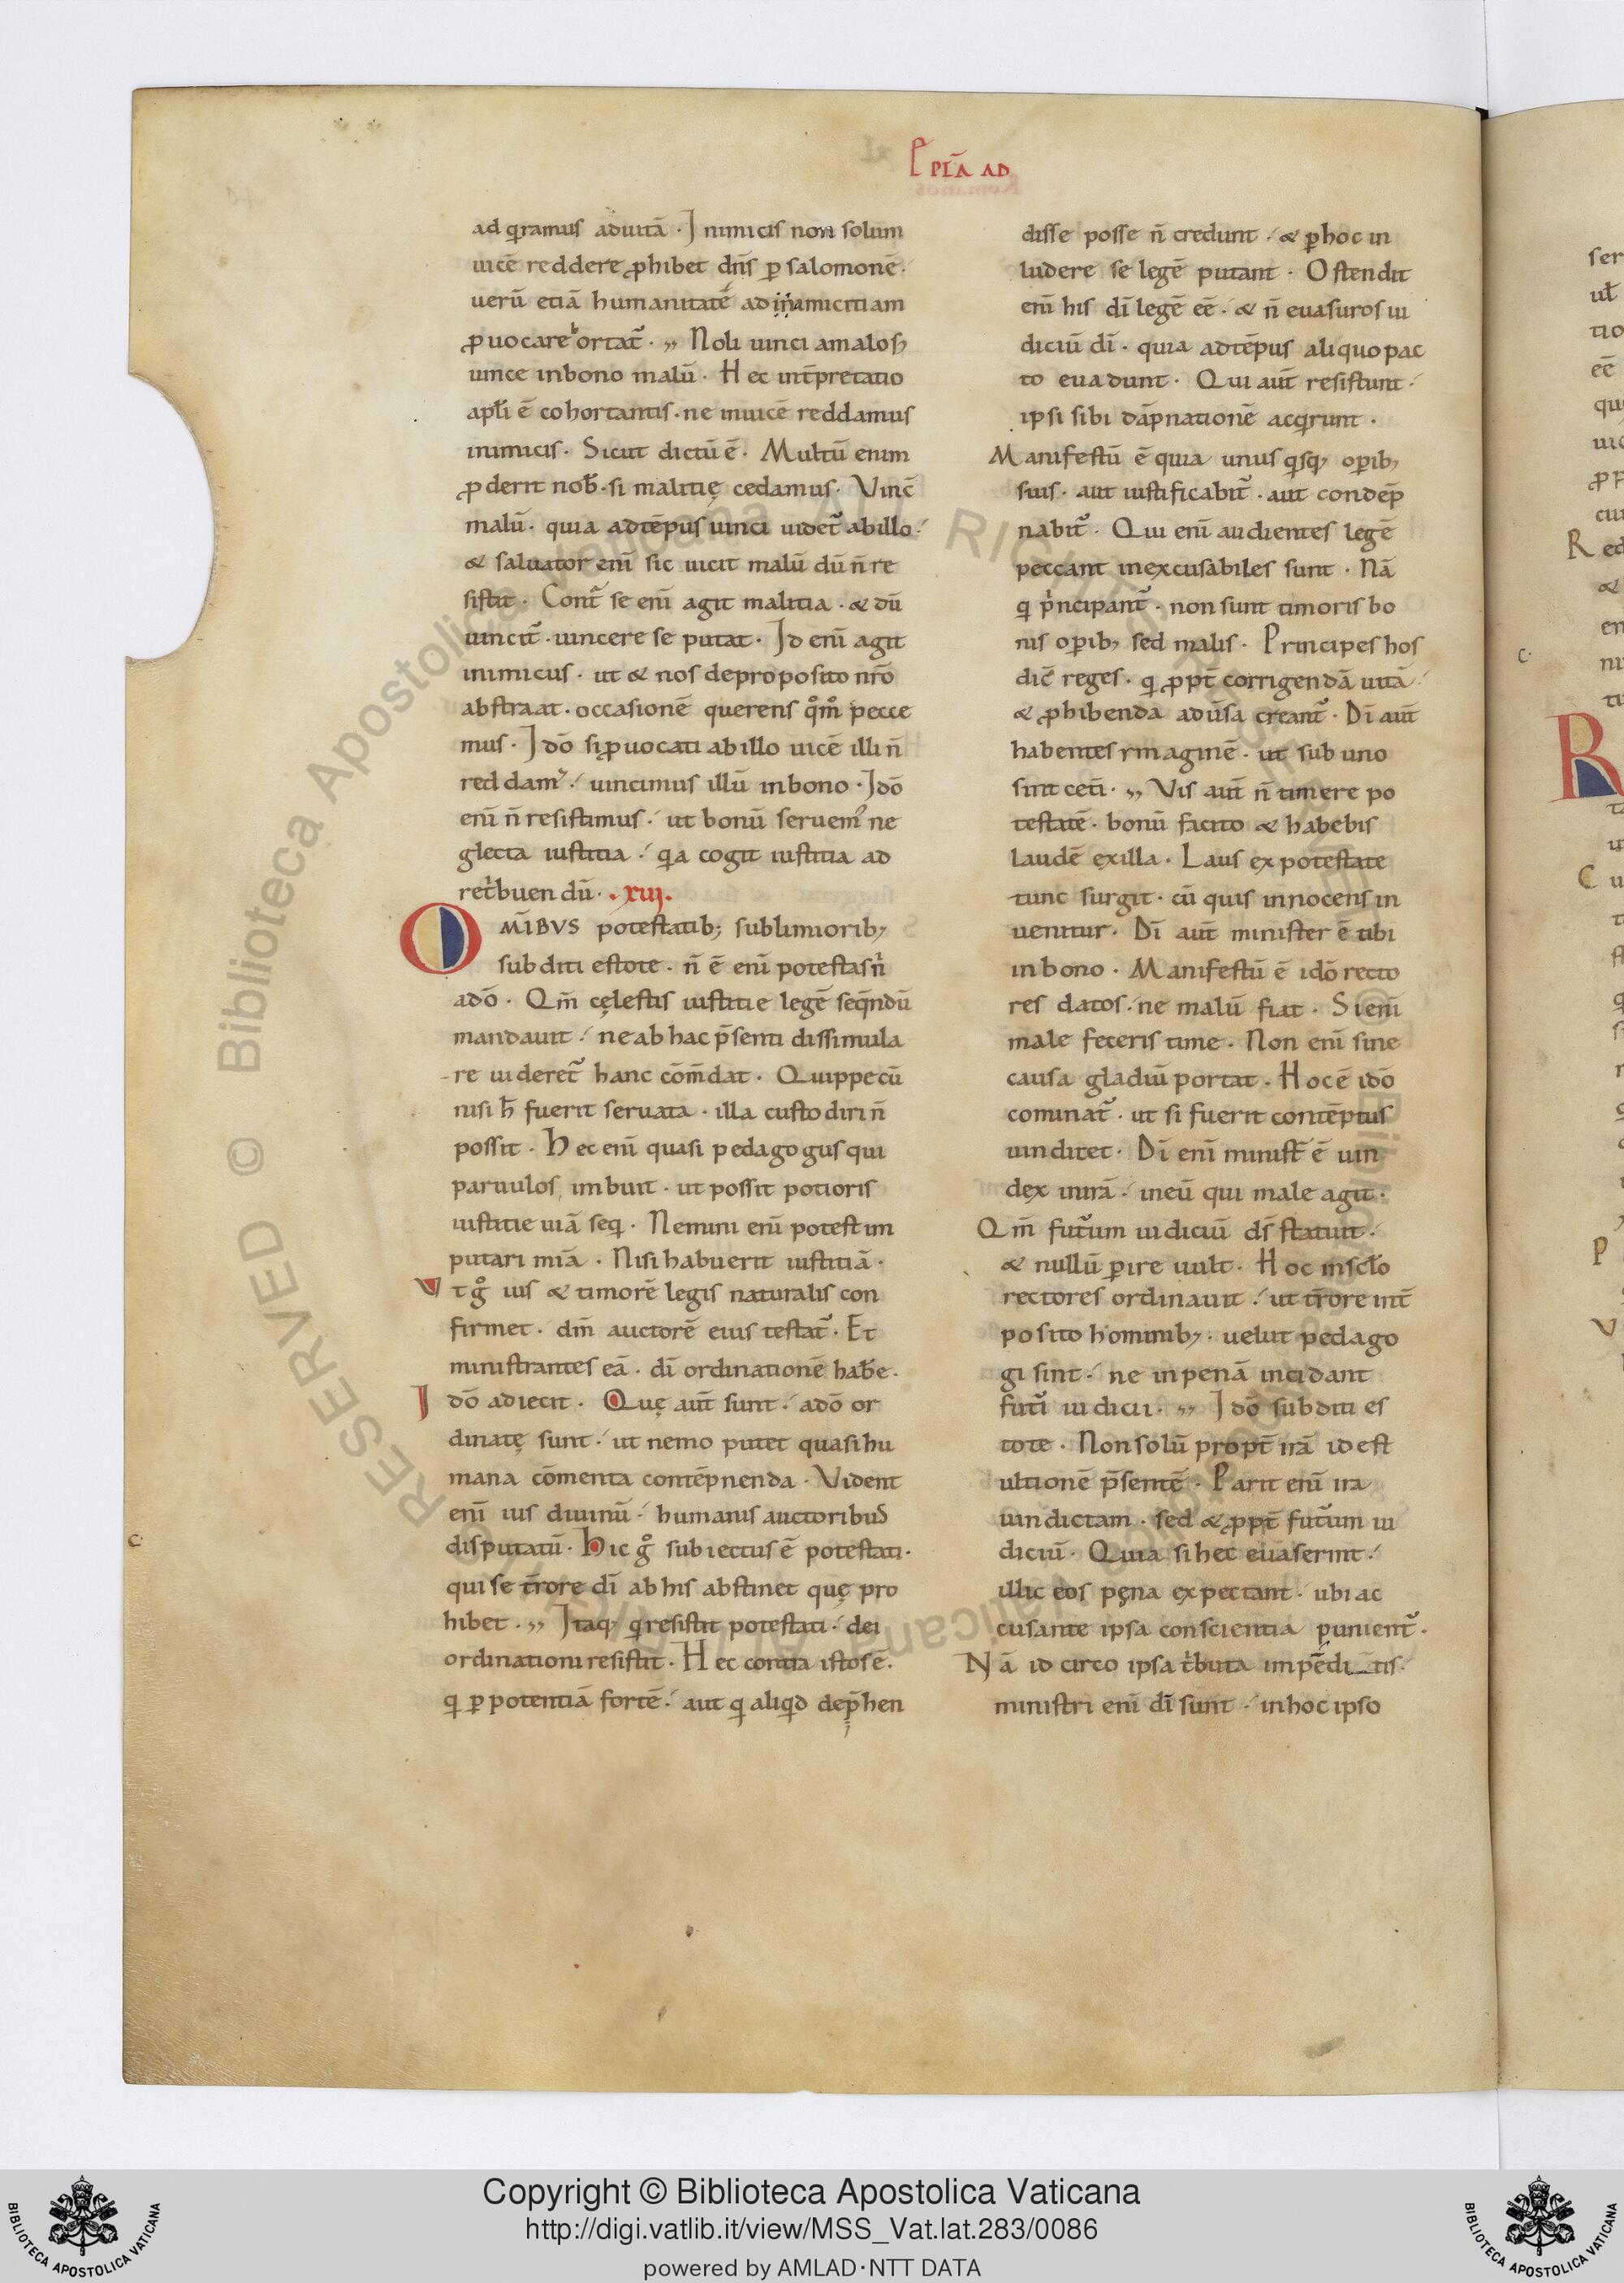 Ep̄la ad
ad q̇ramus aduitā · Inimicis non solum
uicē reddere ꝓhibet dn̄s ꝑ salomonē·
uerū etiā humanitatē ad inamicitiam
ꝓuocare hortat᷑ · ,, Noli uinci amalo sꝫ
uince inbono malū · Hec int̄pretatio
apl̄i ē cohortantis · ne inuicē reddamus
inimicis · Sicut dictū ē · Multū enim
ꝓderit nob̄ · si malitię cedamus · Vinc̄
malū · quia adtēpus uinci uidet᷑ abillo ·
& saluator eni̅ sic uicit malū dū n̄ re
sistit · Cont᷑ se eni̅ agit malitia · & dū
uincit᷑ · uincere se putat · Id eni̅ agit
inimicus · ut & nos deproposito nr̄o
abstraat · occasionē querens qͦmͦ pecce
mus · Idō si ꝓuocati abillo uicē illi n̄
reddamꝰ · uincimus illū inbono · Idō
eni̅ n̄ resistimus · ut bonū seruemꝰ ne
glecta iustitia · qa cogit iustitia ad
ret̓buendū · · xiii ·
OMĪBVS potestatibꝫ sublimioribꝫ
subditi estote · n̄ ē eni̅ potestas n̓
adō · Qm̄ cęlestis iustitie legē seq̄ndū
mandauit · ne ab hac p̄senti dissimula
re uideret᷑ hanc cōm̄dat · Quippe cū
nisi h̄ fuerit seruata · illa custodiri n̄
possit · Hec eni̅ quasi pedagogus qui
paruulos imbuit · ut possit potioris
iustitie uiā seq · Nemini eni̅ potest im
putari miā · Nisi habuerit iustitiā ·
Vt gͦ ius & timorē legis naturalis con
firmet · dm̄ auctorē eius testat᷑ · Et
ministrantes eā · dī ordinationē hab̄e ·
Idō adiecit · Quę aut̄ sunt · adō or
dinatę sunt · ut nemo putet quasi hu
mana cōmenta contēpnenda · Vident
eni̅ ius diuinū · humanis auctoribus
disputatū · Hic gͦ subiectus ē potestati ·
qui se t̄rore dī ab his abstinet quę pro
hibet · ,, Itaqꝫ q̇ resistit potestati · dei
ordinationi resistit · Hec contra istos ē ·
q̇ ꝑ potentiā fortē · aut q̇ aliqd dep̄hen
disse posse n̄ credunt · & ꝑ hoc in
ludere se legē putant · Ostendit
eni̅ his dī legē eē · & n̄ euasuros iu
diciū dī · quia adtēpus aliquo pac
to euadunt · Qui aut̄ resistunt ·
ipsi sibi dāpnationē acq̇runt ·
Manifestū ē quia unus q̇sqꝫ oꝑibꝫ
suis · aut iustificabit᷑ · aut condēp
nabit᷑ · Qui eni̅ audientes legē
peccant inexcusabiles sunt · Nā
q̇ p̓ncipant᷑ · non sunt timoris bo
nis oꝑibꝫ sed malis · Principes hos
dic̄ reges · q̇ ꝓpt̄ corrigendā uitā ·
& ꝓhibenda adūsa creant᷑ · Dī aut̄
habentes ymaginē · ut sub uno
sint cet̄i · ,, Vis aut̄ n̄ timere po
testatē · bonū facito & habebis
laudē exilla · Laus ex potestate
tunc surgit · cū quis innocens in
uenitur · Dī aut̄ minister ē tibi
inbono · Manifestū ē idō recto
res datos · ne malū fiat · Si eni̅
male feceris time · Non eni̅ sine
causa gladiū portat · Hoc ē idō
cominat᷑ · ut si fuerit contēptus
uindicet · Dī eni̅ minist̄ ē uin
dex inirā · ineū qui male agit ·
Qm̄ fut᷑um iudiciū ds̄ statuit ·
& nullū ꝑire uult · Hoc inscl̄o
rectores ordinauit · ut t̄rore int̄
posito hominibꝫ · uelut pedago
gi sint · ne inpenā incidant
fut᷑i iudicii · ,, Idō subditi es
tote · Non solū propt̄ irā id est
ultionē p̄sentē · Parit eni̅ ira
uindictam · sed & ꝓpt̄ fut᷑um iu
diciū · Quia si hec euaserint ·
illic eos pęna expectant · ubi ac
cusante ipsa conscientia punient᷑ ·
Nā id circo ipsa t̓buta impēdi_tis ·
ministri eni̅ dī sunt · inhoc ipso
c·
c·
Copyright © Biblioteca Apostolica Vaticana
http://digi.vatlib.it/view/MSS_Vat.lat.283/0086
powered by AMLAD·NTT DATA
BIBLIOTECA APOSTOLICA VATICANA
BIBLIOTECA APOSTOLICA VATICANA